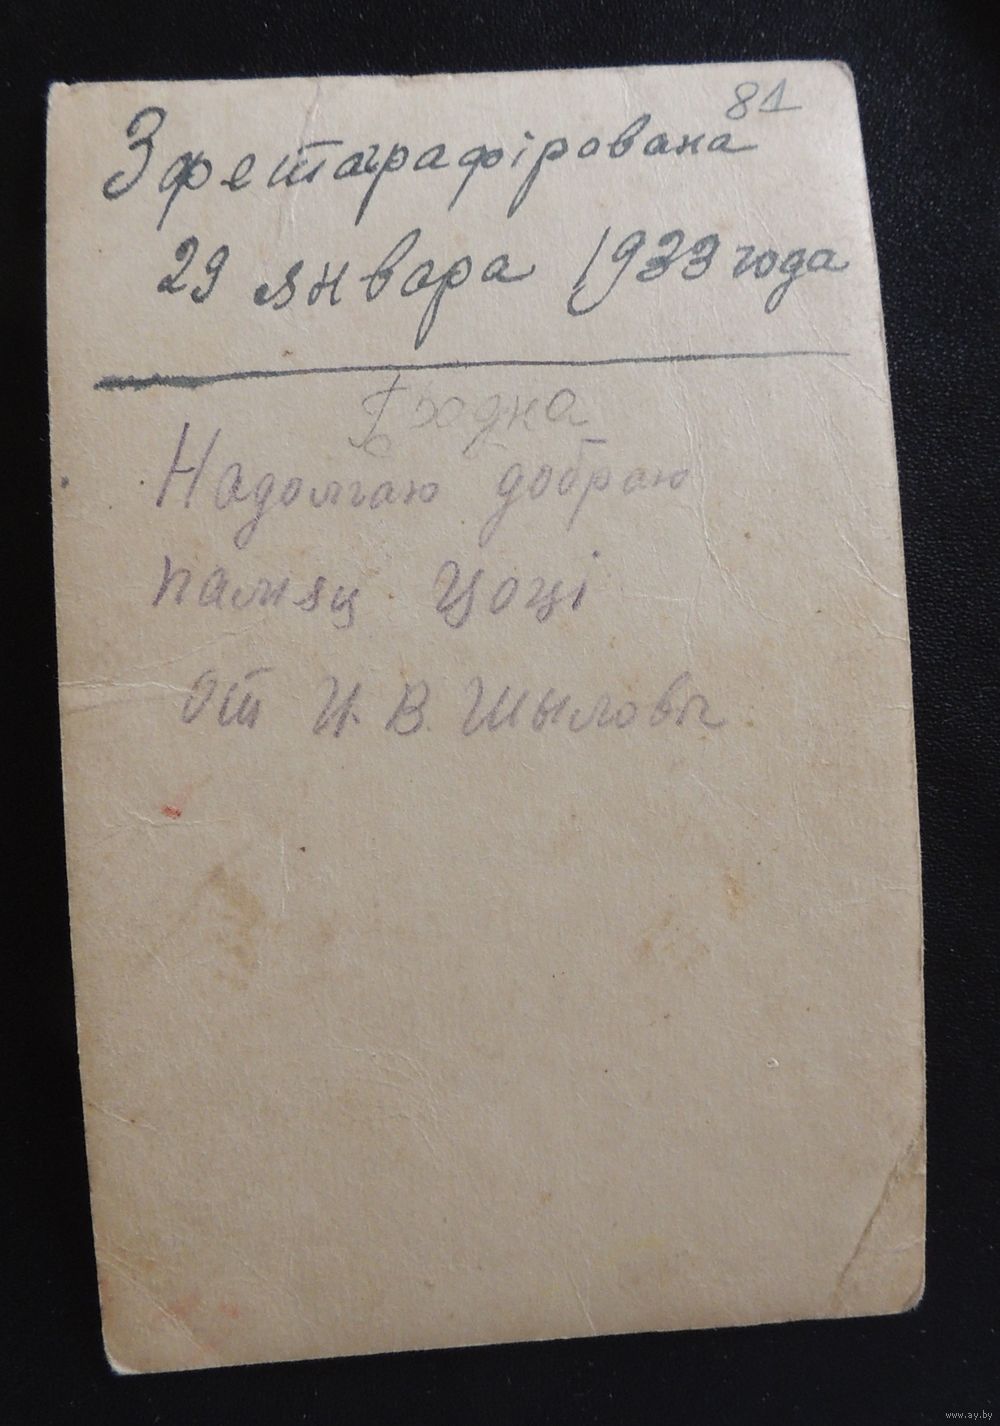 81
Зфетаграфірована
29 января 1933 года
Гродна
Надолгаю добраю
памяц Цоці
от И. В. Шыловы
www.ay.by